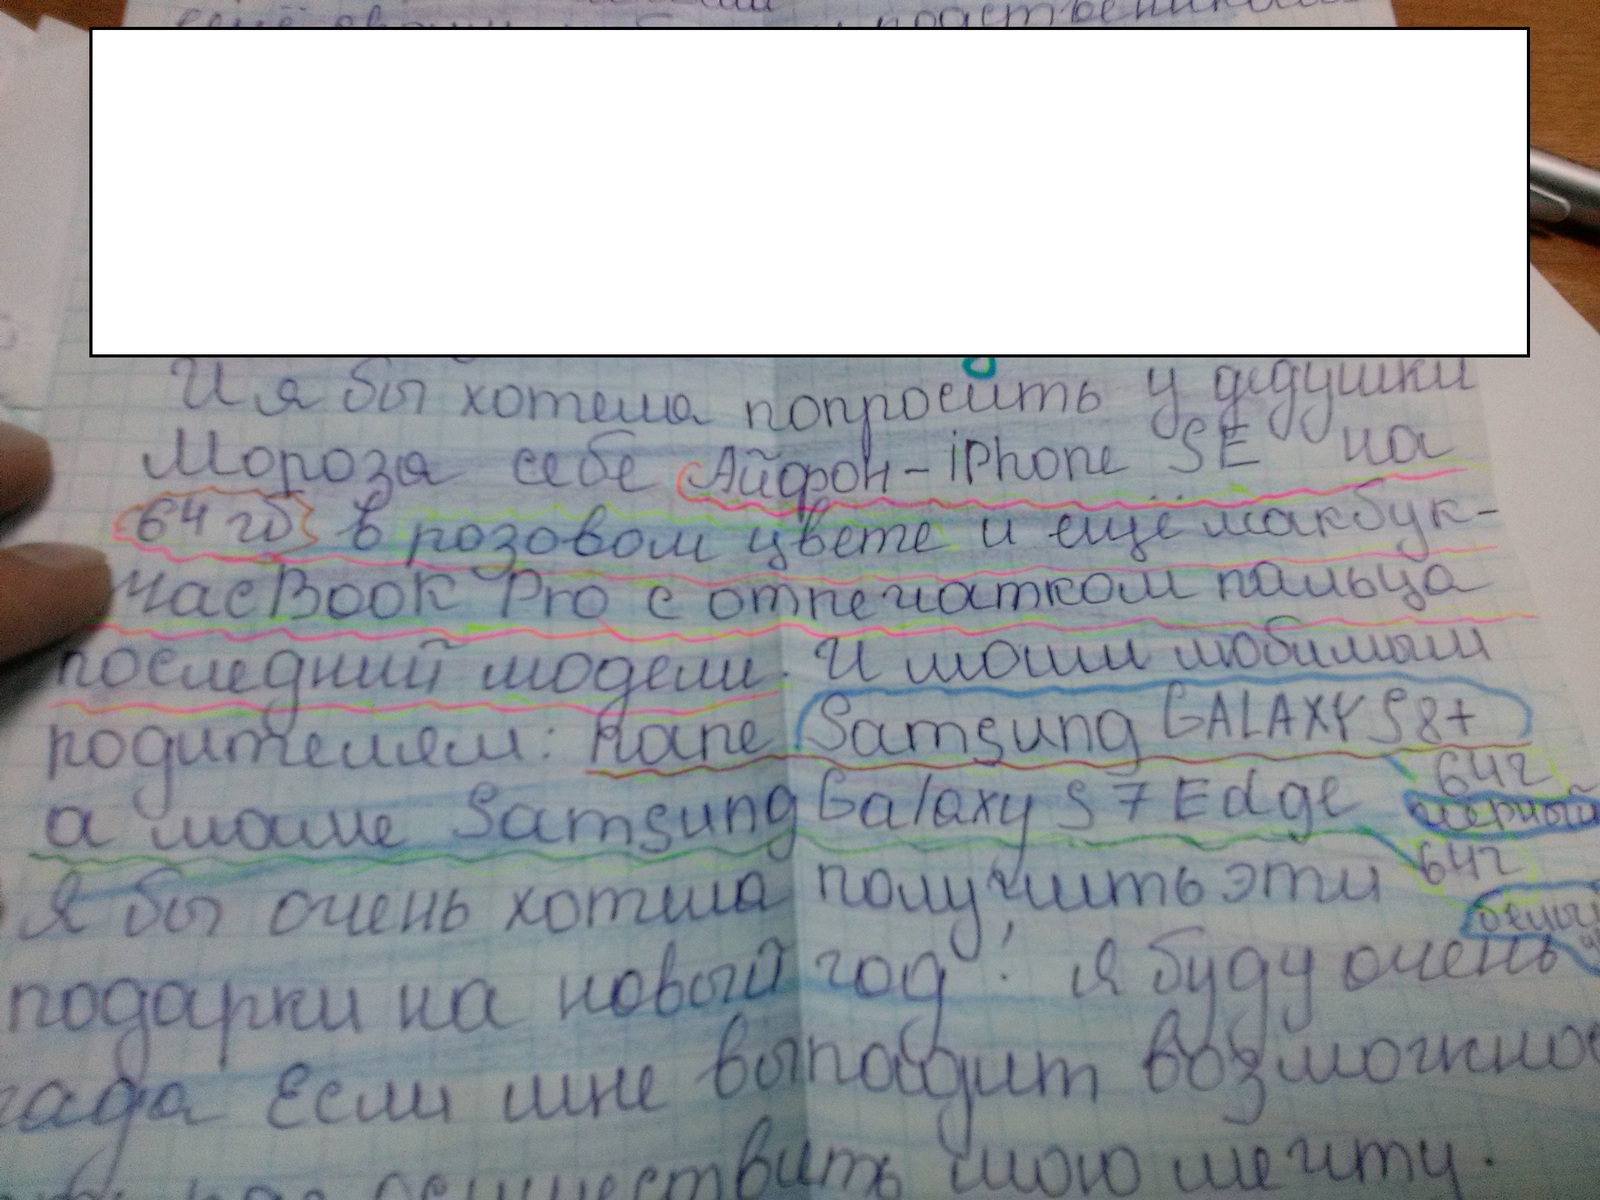 И я бы хотела попросить у дедушки
Мороза себе Айфон-iPhone SE на
64 гб в розовом цвете и ещё макбук-
macBook Pro с отпечатком пальца
последний модели. И моим любимым
родителям: Папе Samsung GALAXY S8+
64г
а маме Samsung Galaxy S7 Edge
черный
64г
Я бы очень хотела получить эти
белый
подарки на новый год! Я буду очень
рада Если мне выпадит
мою мечту.